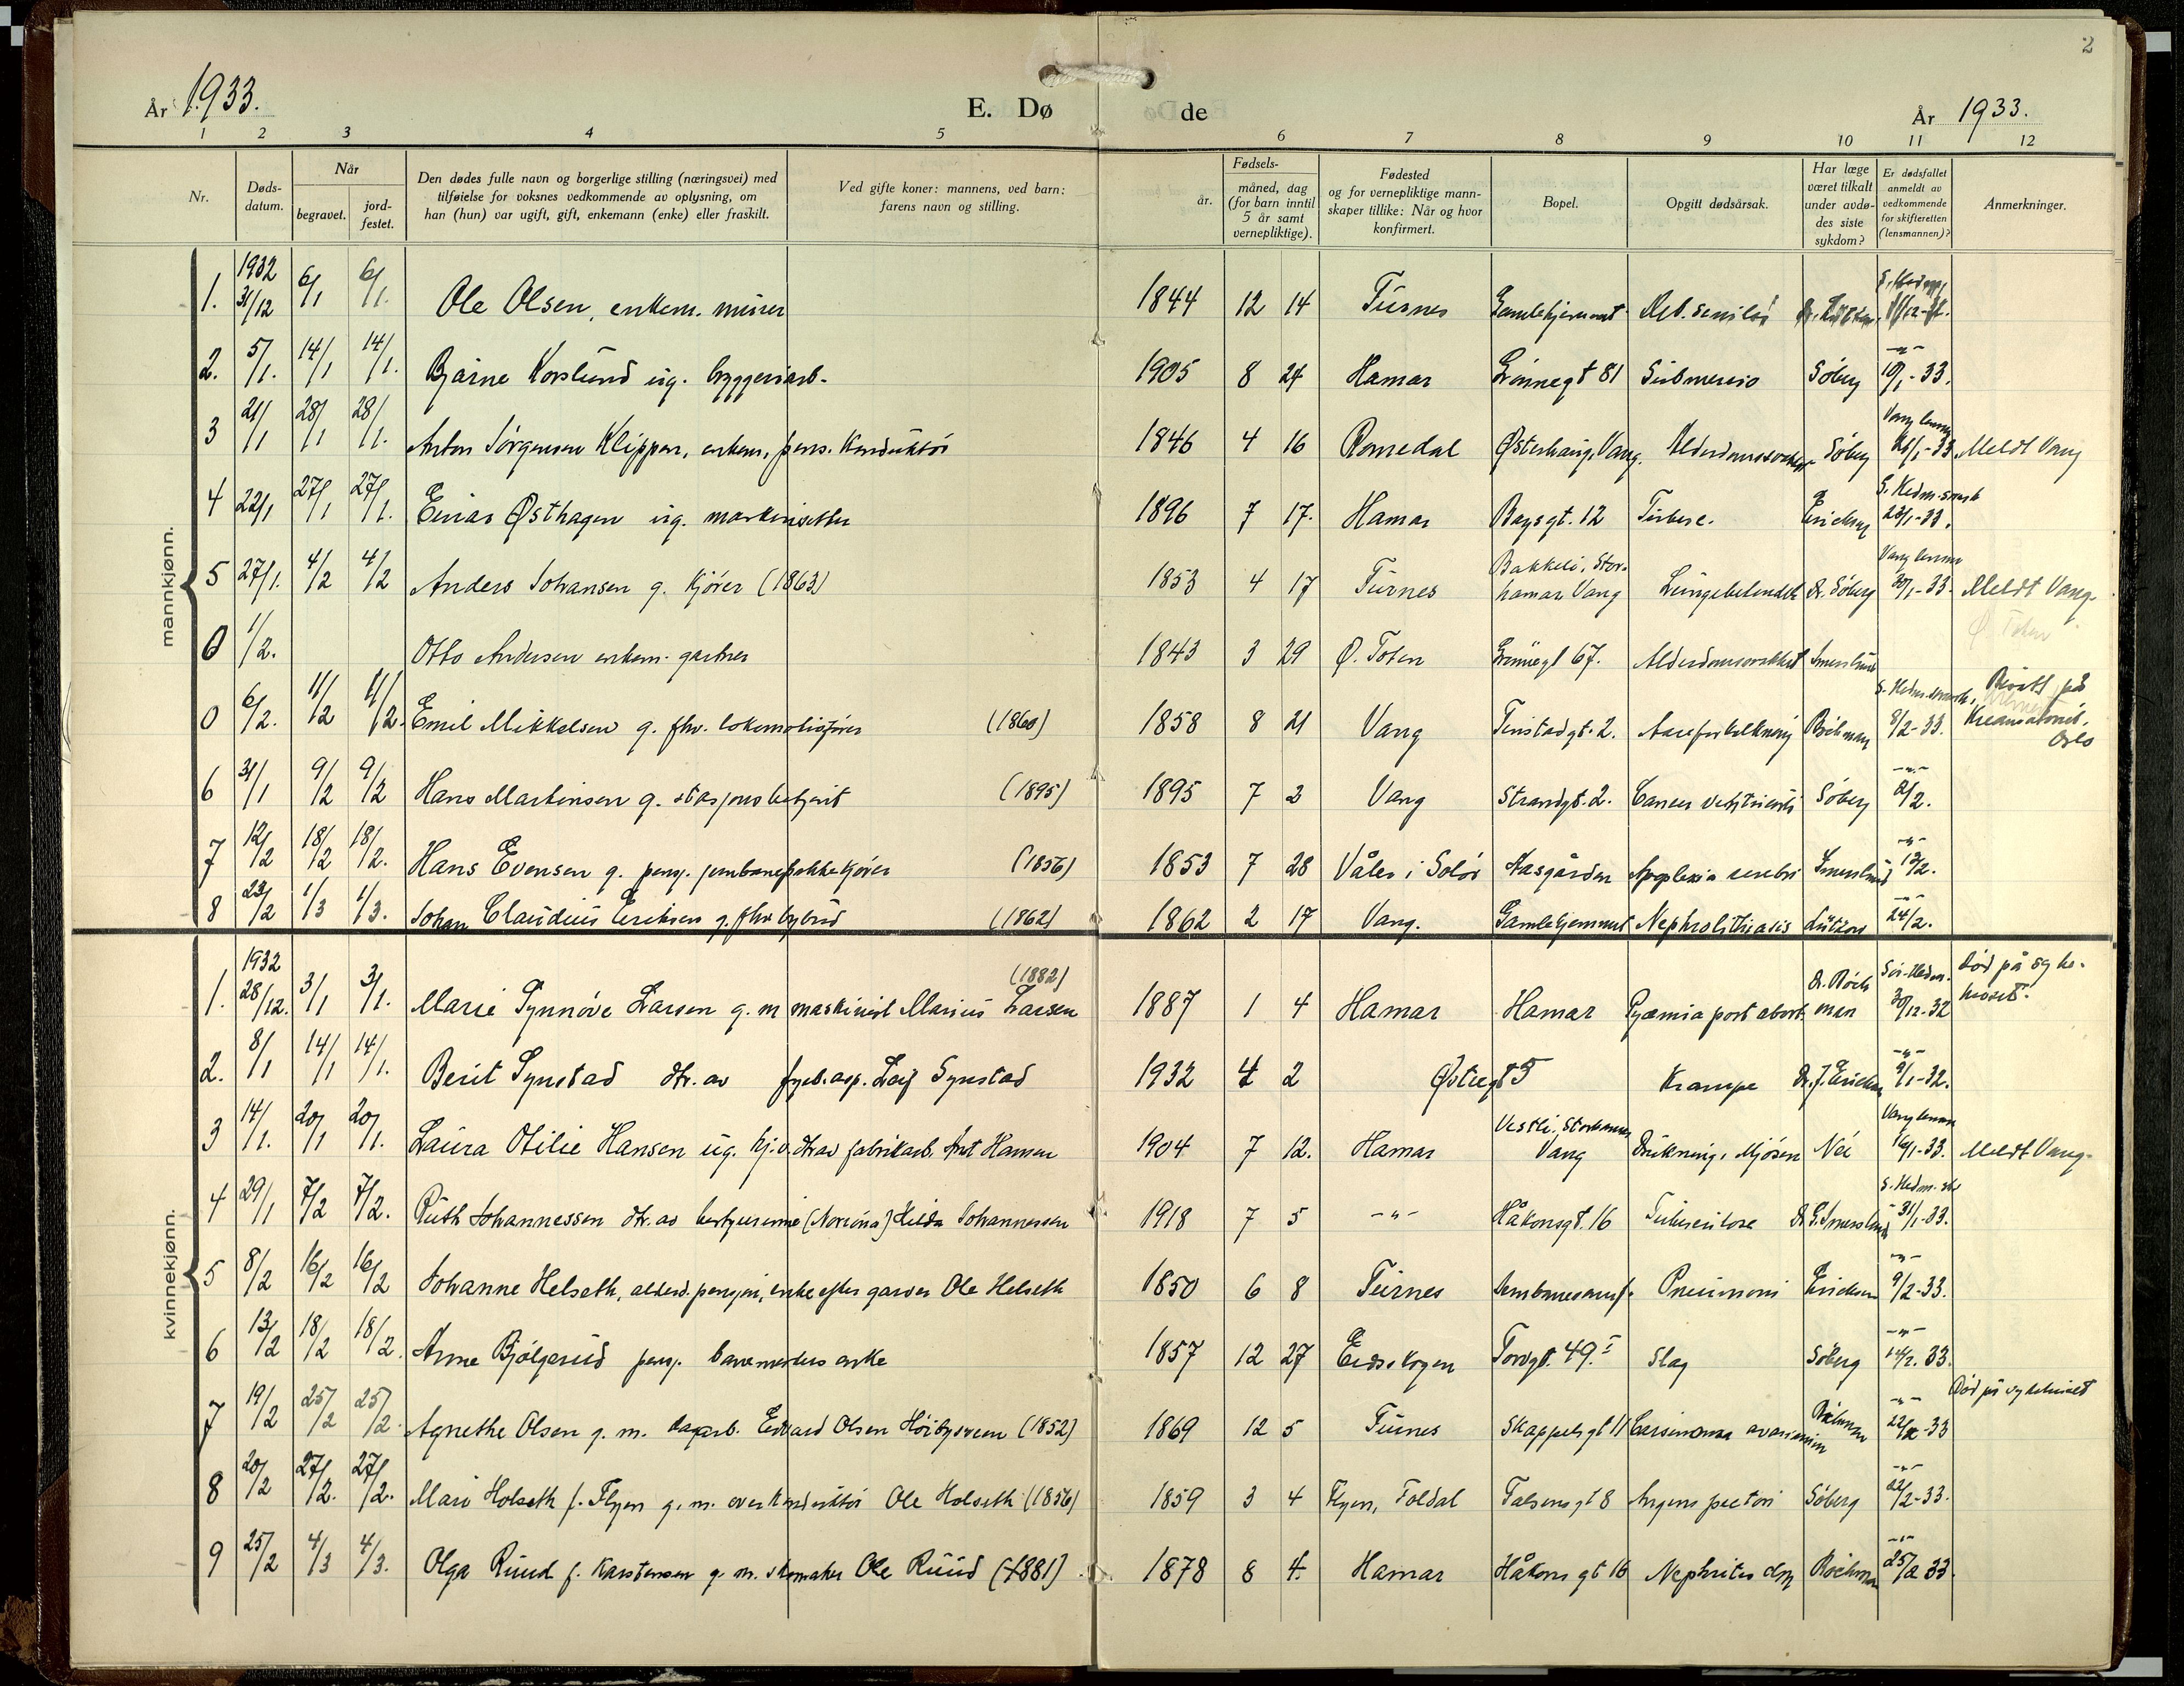 2
År 1933. E. Dø de År 1933.
1 2 3 4 5 6 7 8 9 10 11 12
Nr. Døds-datum. Når begravet. jord-festet. Den dødes fulle navn og borgerlige stilling (næringsvei) med tilføielse for voksnes vedkommende av oplysning, om han (hun) var ugift, gift, enkemann (enke) eller fraskilt. Ved gifte koner: mannens, ved barn: farens navn og stilling. Fødsels- år. måned, dag (for barn inntil 5 år samt vernepliktige). Fødested og for vernepliktige mann-skaper tillike: Når og hvor konfirmert. Bopel. Opgitt dødsårsak. Har læge været tilkalt under avdø-des siste sykdom? Er dødsfallet anmeldt av vedkommende for skifteretten (lensmannen)? Anmerkninger.
mannkjønn.
1. 1932 31/12 6/1 6/1. Ole Olsen, enkem. murer 1844 12 14 Furnes Gamlehjemmet
2. 5/1. 14/1 14/1. Bjarne Korslund ug. bryggeriarb. 1905 8 24 Hamar Grønnegt 81 Submersio Søberg 10/1-33.
3 21/1 28/1 28/1. Anton Jørgensen Klippen, enkem, pens. Konduktør 1846 4 16 Romedal Østerhaug, Vang. Søberg Vang 1-33. Meldt Vang
4 22/1 27/1 27/1. Einar Østhagen ug. maskinsetter 1896 7 17. Hamar Bagsgt. 12 Tuberc. Ericksen 23/1-33.
5 27/1. 4/2 4/2 Anders Johansen g. kjører (1863) 1853 4 17 Furnes Bakkeli, Storhamar Vang Lungebetendelse Dr. Søberg 30/1-33. Meldt Vang.
0 1/2. Otto Andersen enkem. gartner 1843 3 29 Ø. Toten Grønnegt 67. Ø. Toten
0 6/2. 11/2 11/2. Emil Mikkelsen g. fhv. lokomotivfører (1860) 1858 8 21 Vang Tinstadgt. 2. Aareforkalkning 8/2-33. Brent på Krematoriet. Oslo
6 31/1 9/2 9/2 Hans Martinsen g. stasjonsbetjent (1895) 1895 7 2 Vang Strandgt. 2. Cancer Søberg 2/2.
7 12/2 18/2 18/2. Hans Evensen g. pensj. jernbanepakkekjører (1856) 1853 7 28 Våler i Solør Aasgården Apoplexia cerebri Smeslund 13/2.
8 23/2 1/3 1/3. Johan Claudius Eriksen g. fhv bybud (1862) 1862 2 17 Vang. Gamlehjemmet Nephrolithiasis Lützow 24/2.
kvinnekjønn.
1. 1932 28/12. 3/1 3/1. Marie Synnøve Larsen g. m maskinist Marius Larsen (1882) 1887 1 4 Hamar Hamar Pyæmia post abort. 30/12-32 død på sykehuset.
2. 8/1 14/1 14/1. Berit Synstad dtr. av fyrb. asp. Leif Synstad 1932 4 2 Østregt 5 Krampe Dr. J. Ericksen 9/1-32.
3 14/1. 20/1 20/1. Laura Otilie Hansen ug. hj. v. dtr av fabrikarb. Hansen 1904 7 12. Hamar Vestli, Storhamar Vang Drukning i Mjøsen Nei 16/1-33. Meldt Vang.
4 29/1 7/2 7/2. Ruth Johannessen dtr. av bestyrerinne (Norrøna) Hilda Johannessen 1918 7 5 -"- Håkonsgt. 16 Tuberculose 31/1-33.
5 8/2 16/2 16/2 Johanne Helseth, alderd. pensjon, enke efter garver Ole Helseth 1850 6 8 Furnes Pneumoni Ericksen 9/2-33.
6 13/2 18/2 18/2. Anne Bjølgerud pensj. banemesters enke 1857 12 27 Eidskogen Torvgt. 49. I Slag Søberg 14/2. 33.
7 19/2 25/2 25/2. Agnethe Olsen g. m. dagarb. Edvard Olsen Høibysveen (1852) 1869 12 5 Furnes Skappelsgt 11 Carsinoma ovariorum 22/2-33 Død på sykehuset
8 20/2 27/2. 27/2. Mari Holseth f. Flyen g. m. overkonduktør Ole Holseth (1856) 1859 3 4 Flyen, Foldal Falsensgt 8 Angina pectori Søberg 22/2-33.
9 25/2 4/3 4/3. Olga Ruud f. Karstensen g. m. skomaker Ole Ruud (1881) 1878 8 4. Hamar Håkonsgt 16 Nephritis 25/2 33.